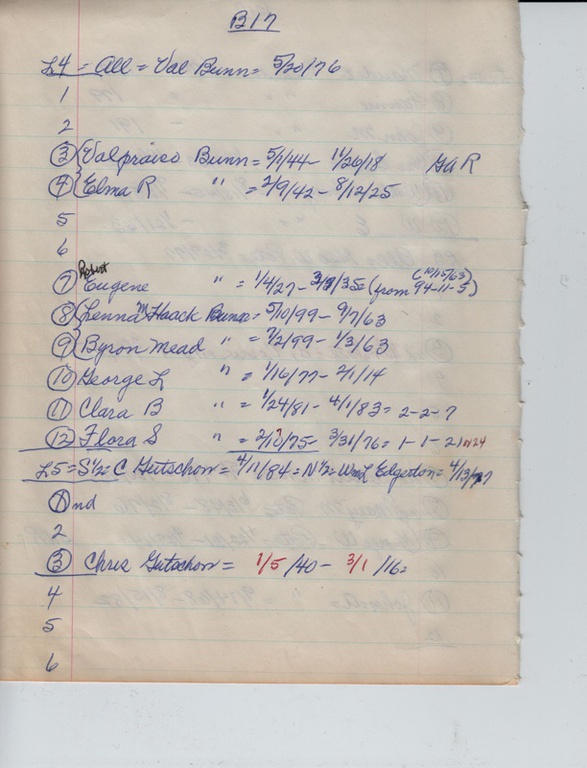 B17
L4 = All = Val Bunn = 5/20/76
1
2
③ Valpraiso Bunn = 5/1/44 - 11/26/18 GAR
④ Elma R " = 2/9/42 - 8/12/25
5
6
Robert
⑦ Eugene " = 1/4/27 - /35 = (from 94-11-5) (10/15/63)
⑧ Lenna M Haack Bunn = 5/10/99 - 9/7/63
⑨ Byron Mead " = 7/2/99 - 1/3/63
⑩ George L " = 1/16/77 - 2/1/14
⑪ Clara B " = 1/24/81 - 4/1/83 = 2-2-7
⑫ Flora S " = 2/10/75 - 3/31/76 = 1-1-21
L5 = S½ = C Gutschow = 4/11/84 = N½ = Wm L Edgerton = 4/13/
① nd
2
③ Chris Gutschow = 1/5/40 - 3/1/16 =
4
5
6